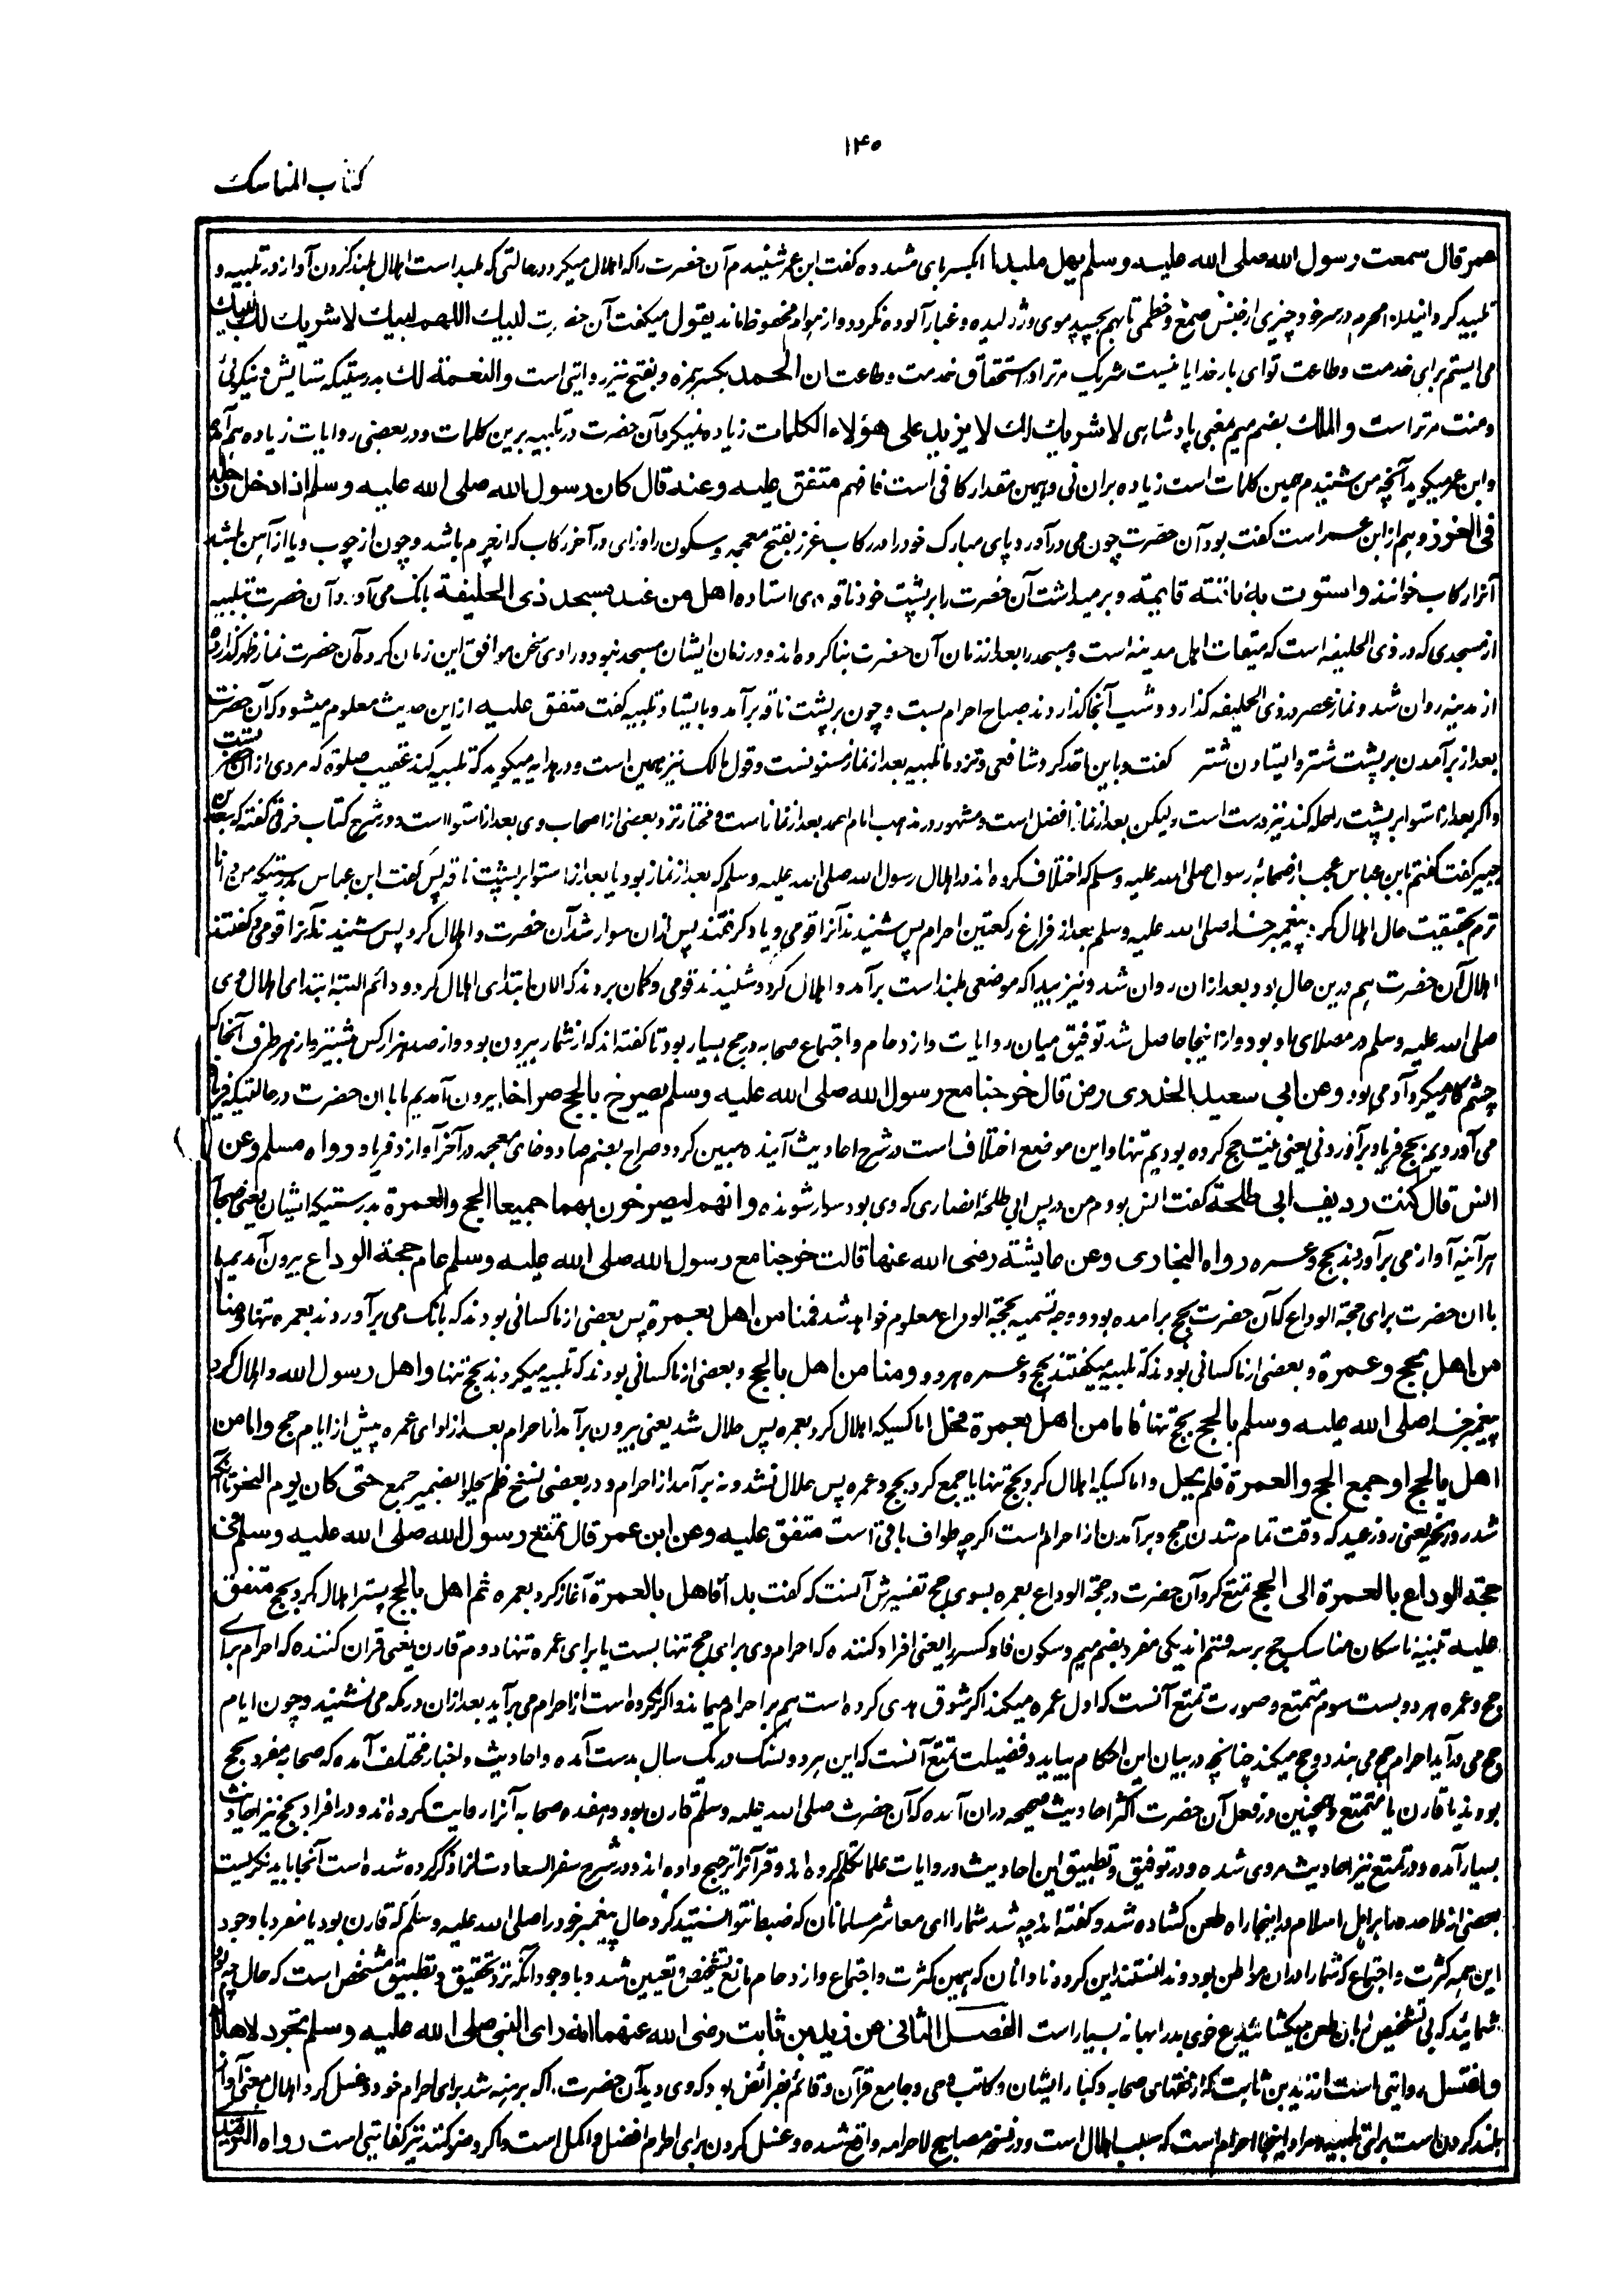 ۱۴۰
کتاب المناسک
عمر قال سمعت رسول الله صلی الله علیه وسلم یهل ملبدا بکسر بای مشدده گفت ابن عمر شنیدم آن حضرت را که اهلال میکرد در حالتی که ملبد است اهلال بلند کردن آواز در تلبیه و
تلبید گردانیدن محرم در سر خود چیزی از جنس صمغ و خطمی تا بهم بچسپد موی و ژولیده و غبار آلوده نگردد و از هوام محفوظ ماند یقول میگفت آن حضرت لبیک اللهم لبیک لا شریک لک لبیک
می ایستم برای خدمت و طاعت تو ای بار خدایا نیست شریک مر ترا در استحقاق خدمت و طاعت ان الحمد بکسر همزه و بفتح نیز روایتی است والنعمة لک بدرستیکه ستایش و نیکوئی
و منت مر تراست والملک بضم میم بمعنی پادشاهی لا شریک لک لا یزید علی هؤلاء الکلمات زیاده نمیکرد آن حضرت در تلبیه برین کلمات و در بعضی روایات زیاده هم آمده
و ابن عمر میگوید آنچه من شنیدم همین کلمات است زیاده بران نی و همین مقدار کافی است فافهم متفق علیه وعنه قال کان رسول الله صلی الله علیه وسلم اذا ادخل رجله
فی الغرز و هم از ابن عمر است گفت بود آن حضرت چون می درآورد پای مبارک خود را در رکاب غرز بفتح معجمه و سکون را و زای در آخر رکاب که از چرم باشد و چون از چوب و یا از آهن باشد
آنرا رکاب خوانند واستوت به ناقته قایمة و برمیداشت آن حضرت را بر پشت خود ناقه وی استاده اهل من عند مسجد ذی الحلیفة بانگ می آورد آن حضرت تلبیه
از مسجدی که در ذی الحلیفه است که میقات اهل مدینه است و مسجد را بعد از زمان آن حضرت بنا کرده اند و در زمان ایشان مسجد نبود و راوی سخن موافق این زمان کرد و آن حضرت نماز ظهر گذارده
از مدینه روان شد و نماز عصر در ذی الحلیفه گذارد و شب آنجا گذارد و صباح احرام بست و چون بر پشت ناقه برآمد و بایستاد تلبیه گفت متفق علیه ازین حدیث معلوم میشود که آن حضرت
بعد از برآمدن بر پشت شتر و ایستادن شتر گفت و باین اخذ کرد شافعی و نزد ما تلبیه بعد از نماز مسنونست و قول مالک نیز همین است و در هدایه میگوید که تلبیه کند عقیب صلوة که مروی از آن حضرت
و اگر بعد از استوا بر پشت راحله کند نیز درست است ولیکن بعد از نماز افضل است و مشهور در مذهب امام احمد بعد از نماز است و مختار نزد بعضی از اصحاب وی بعد از استوا است و در شرح کتاب خرقی گفته که سعید بن
جبیر گفت گفتم بابن عباس عجب از صحابه رسول صلی الله علیه وسلم که اختلاف کرده اند در اهلال رسول الله صلی الله علیه وسلم که بعد از نماز بود یا بعد از استوا بر پشت ناقه پس گفت ابن عباس بدرستیکه من دانا
ترم بحقیقت حال اهلال کرد پیغمبر خدا صلی الله علیه وسلم بعد از فراغ رکعتین احرام پس شنیدند آنرا قومی و یاد گرفتند پس ازان سوار شد آن حضرت و اهلال کرد پس شنیدند آنرا قومی و گفتند
اهلال آن حضرت هم درین حال بود و بعد ازان روان شد و نیز ببیدا که موضعی بلند است برآمد و اهلال کرد و شنیدند قومی و گمان بردند که الان ابتدای اهلال کرد و دائم البته ابتدای اهلال وی
صلی الله علیه وسلم در مصلای او بود و از اینجا حاصل شد توفیق میان روایات و ازدحام و اجتماع صحابه در حج بسیار بود تا گفته اند که از شمار بیرون بود و از صد هزار کس بیشتر و از هر طرف آنجا که
چشم کار میکرد آدمی بود وعن ابی سعید الخدری رض قال خرجنا مع رسول الله صلی الله علیه وسلم نصرخ بالحج صراخا بیرون آمدیم ما با آن حضرت در حالتیکه فریاد
می آوردیم بحج فریاد برآوردنی یعنی نیت حج کرده بودیم تنها و این موضع اختلاف است در شرح احادیث آینده مبین گردد صراخ بضم صاد و خای معجمه در آخر آواز و فریاد رواه مسلم وعن
انس قال کنت ردیف ابی طلحة گفت انس بودم من در پس ابی طلحه انصاری که وی بود سوار شونده وانهم لیصرخون بهما جمیعا الحج والعمرة بدرستیکه ایشان یعنی صحابه
هر آینه آواز می برآوردند بحج و عمره رواه البخاری وعن عایشة رضی الله عنها قالت خرجنا مع رسول الله صلی الله علیه وسلم عام حجة الوداع بیرون آمدیم ما
با آن حضرت برای حجة الوداع که آن حضرت بحج برامده بود و وجه تسمیه بحجة الوداع معلوم خواهد شد فمنا من اهل بعمرة پس بعضی از ما کسانی بودند که بانگ می برآوردند بعمره تنها ومنا
من اهل بحج وعمرة و بعضی از ما کسانی بودند که تلبیه میگفتند بحج و عمره هر دو ومنا من اهل بالحج و بعضی از ما کسانی بودند که تلبیه میکردند بحج تنها واهل رسول الله و اهلال کرد
پیغمبر خدا صلی الله علیه وسلم بالحج بحج تنها فاما من اهل بعمرة فحل اما کسیکه اهلال کرد بعمره پس حلال شد یعنی بیرون برآمد از احرام بعد از ادای عمره پیش از ایام حج واما من
اهل بالحج او جمع الحج والعمرة فلم یحل و اما کسیکه اهلال کرد بحج تنها یا جمع کرد بحج و عمره پس حلال نشد و نه برآمد از احرام و در بعضی نسخ فلم یحلوا بضمیر جمع حتی کان یوم النحر تا آنکه
شد روز نحر یعنی روز عید که وقت تمام شدن حج و برآمدن از احرام است اگرچه طواف باقی است متفق علیه وعن ابن عمر قال تمتع رسول الله صلی الله علیه وسلم فی
حجة الوداع بالعمرة الی الحج تمتع کرد آن حضرت در حجة الوداع بعمره بسوی حج تفسیرش آنست که گفت بدأ فاهل بالعمرة آغاز کرد بعمره ثم اهل بالحج پستر اهلال کرد بحج متفق
علیه تنبیه ناسکان مناسک حج برسه قسم اند یکی مفرد بضم میم و سکون فا و کسر را یعنی افراد کننده که احرام وی برای حج تنها بست یا برای عمره تنها دوم قارن یعنی قران کننده که احرام برای
حج و عمره هر دو بست سوم متمتع و صورت تمتع آنست که اول عمره میکند اگر سوق هدی کرده است هم بر احرام میماند و اگر نکرده است از احرام می برآید بعد ازان در مکه می نشیند و چون ایام
حج می درآید احرام حج می بندد و حج میکند چنانچه در بیان این احکام بیاید و فضیلت تمتع آنست که این هر دو نسک در یک سال بدست آمده و احادیث و اخبار مختلف آمده که صحابه مفرد بحج
بودند یا قارن یا متمتع و همچنین در فعل آن حضرت اکثر احادیث صحیحه دران آمده که آن حضرت صلی الله علیه وسلم قارن بود و هفده صحابه آنرا روایت کرده اند و در افراد بحج نیز احادیث
بسیار آمده و در تمتع نیز احادیث مروی شده و در توفیق و تطبیق این احادیث و روایات علما تکلم کرده اند و قرآنرا ترجیح داده اند و در شرح سفر السعادت آنرا ذکر کرده شده است آنجا باید نگریست
بعضی از ملاحده را بر اهل اسلام در اینجا راه طعن کشاده شد و گفته اند چه شد شمارا ای معاشر مسلمانان که ضبط نتوانستید کرد حال پیغمبر خود را صلی الله علیه وسلم که قارن بود یا مفرد با وجود
این همه کثرت و اجتماع که شمارا دران مواطن بود و ندانستند این گروه نادانان که همین کثرت و اجتماع و ازدحام مانع تشخیص و تعیین شد و با وجود آنکه نزد تحقیق و تطبیق مشخص است که حال چه بود
شمائید که بی تشخیص زبان طعن میکشائید ع خوی بد را بهانه بسیار است الفصل الثانی عن زید بن ثابت رضی الله عنهما انه رای النبی صلی الله علیه وسلم تجرد لاهلاله
واغتسل روایتی است از زید بن ثابت که از فقهای صحابه و کبار ایشان و کاتب وحی و جامع قرآن و قائم بفرائض بود که وی دید آن حضرت را که برهنه شد برای احرام خود و غسل کرد اهلال بمعنی آواز
بلند کردن است برای تلبیه و مراد اینجا احرام است که سبب اهلال است و در نسخه مصابیح لاحرامه واقع شده و غسل کردن برای احرام افضل و اکمل است و اگر وضو کنند نیز کفایتی است رواه الترمذی